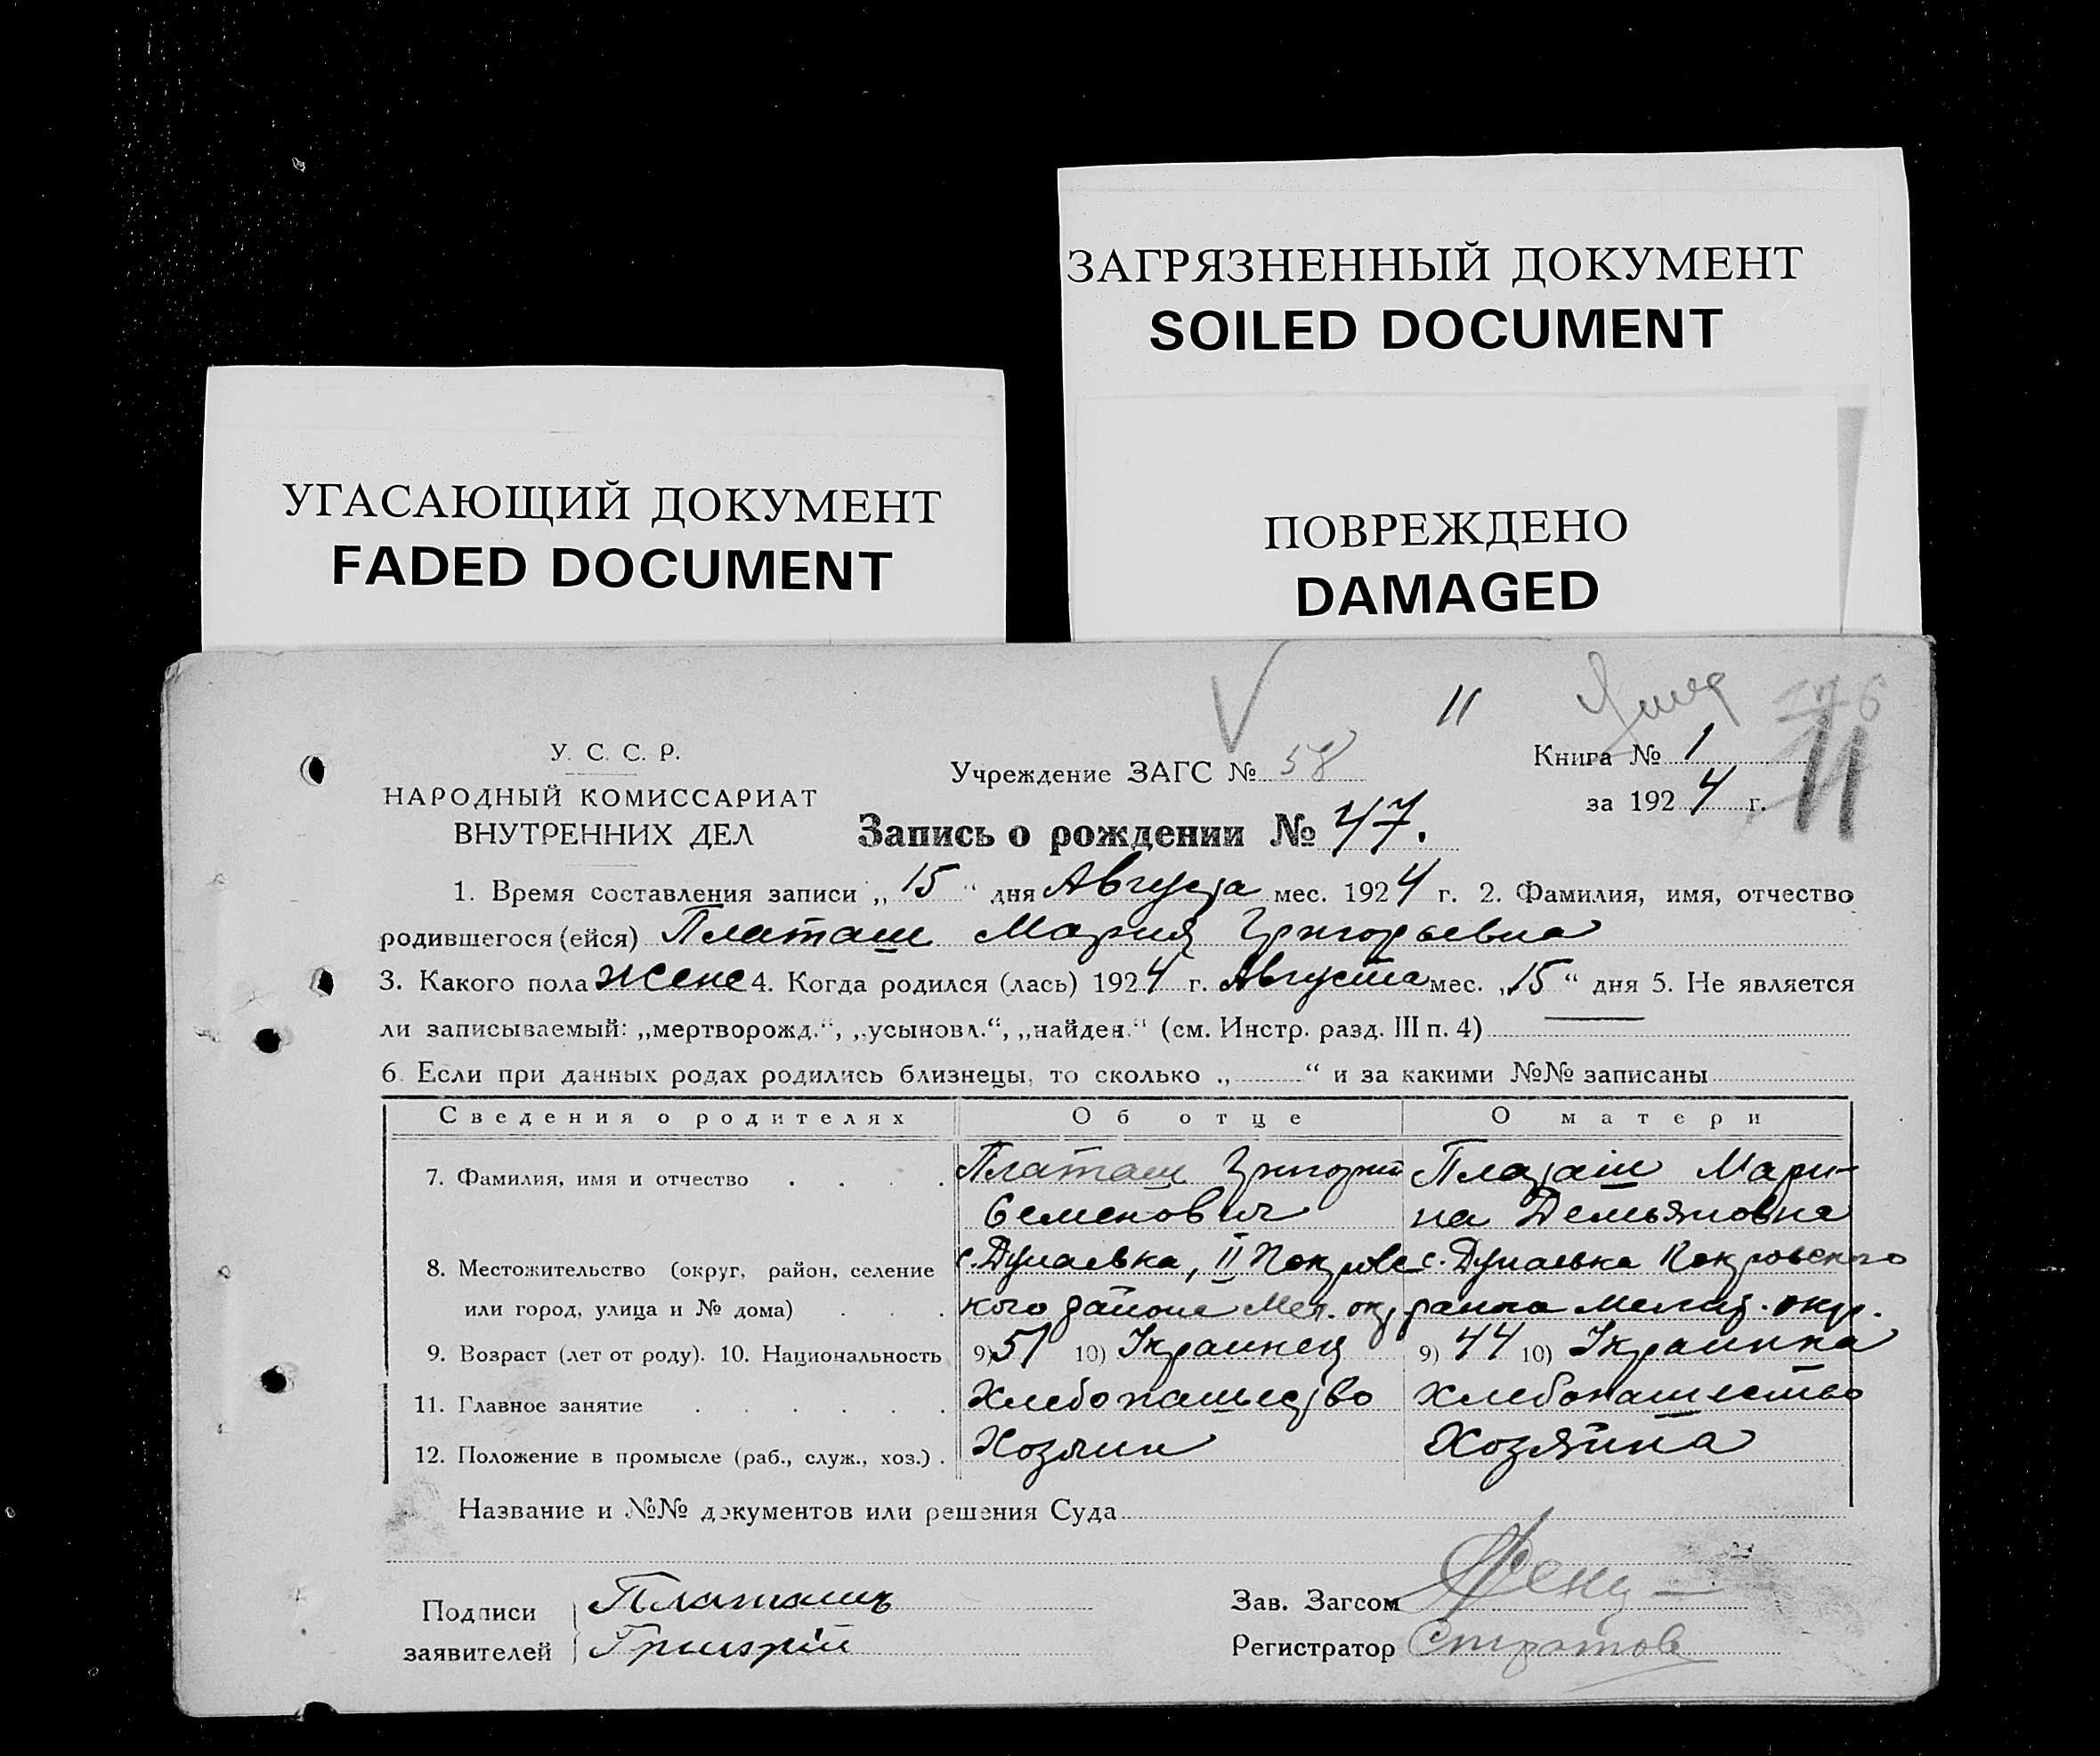 ЗАГРЯЗНЕННЫЙ ДОКУМЕНТ
SOILED DOCUMENT
УГАСАЮЩИЙ ДОКУМЕНТ
FADED DOCUMENT
ПОВРЕЖДЕНО
DAMAGED
11
У. С. С. Р.
НАРОДНЫЙ КОМИССАРИАТ
ВНУТРЕННИХ ДЕЛ
Учреждение ЗАГС № 58
Книга № 1
за 1924 г.
11
Запись о рождении № 47.
1. Время составления записи „15“ дня Августа мес. 1924 г. 2. Фамилия, имя, отчество
родившегося (ейся) Платаш Мария Григорьевна
3. Какого пола жене 4. Когда родился (лась) 1924 г. Августа мес. „15“ дня 5. Не является
ли записываемый: „мертворожд.“, „усыновл.“, „найден.“ (см. Инстр. разд. III п. 4)
6. Если при данных родах родились близнецы, то сколько „ “ и за какими №№ записаны
Сведения о родителях Об отце О матери
7. Фамилия, имя и отчество Платаш Григорий Платаш Мари-
Семенович на Демьяновна
8. Местожительство (округ, район, селение с. Дунаевка, II Покровс с. Дунаевка Покровского
или город, улица и № дома) кого района Мел. ок, района Мелит. окр.
9. Возраст (лет от роду). 10. Национальность 9) 51 10) Украинец 9) 44 10) Украинка
11. Главное занятие Хлебопашество Хлебопашество
12. Положение в промысле (раб., служ., хоз.) Хозяин Хозяйка
Название и №№ документов или решения Суда
Подписи Платашъ Зав. Загсом
заявителей Григорій Регистратор